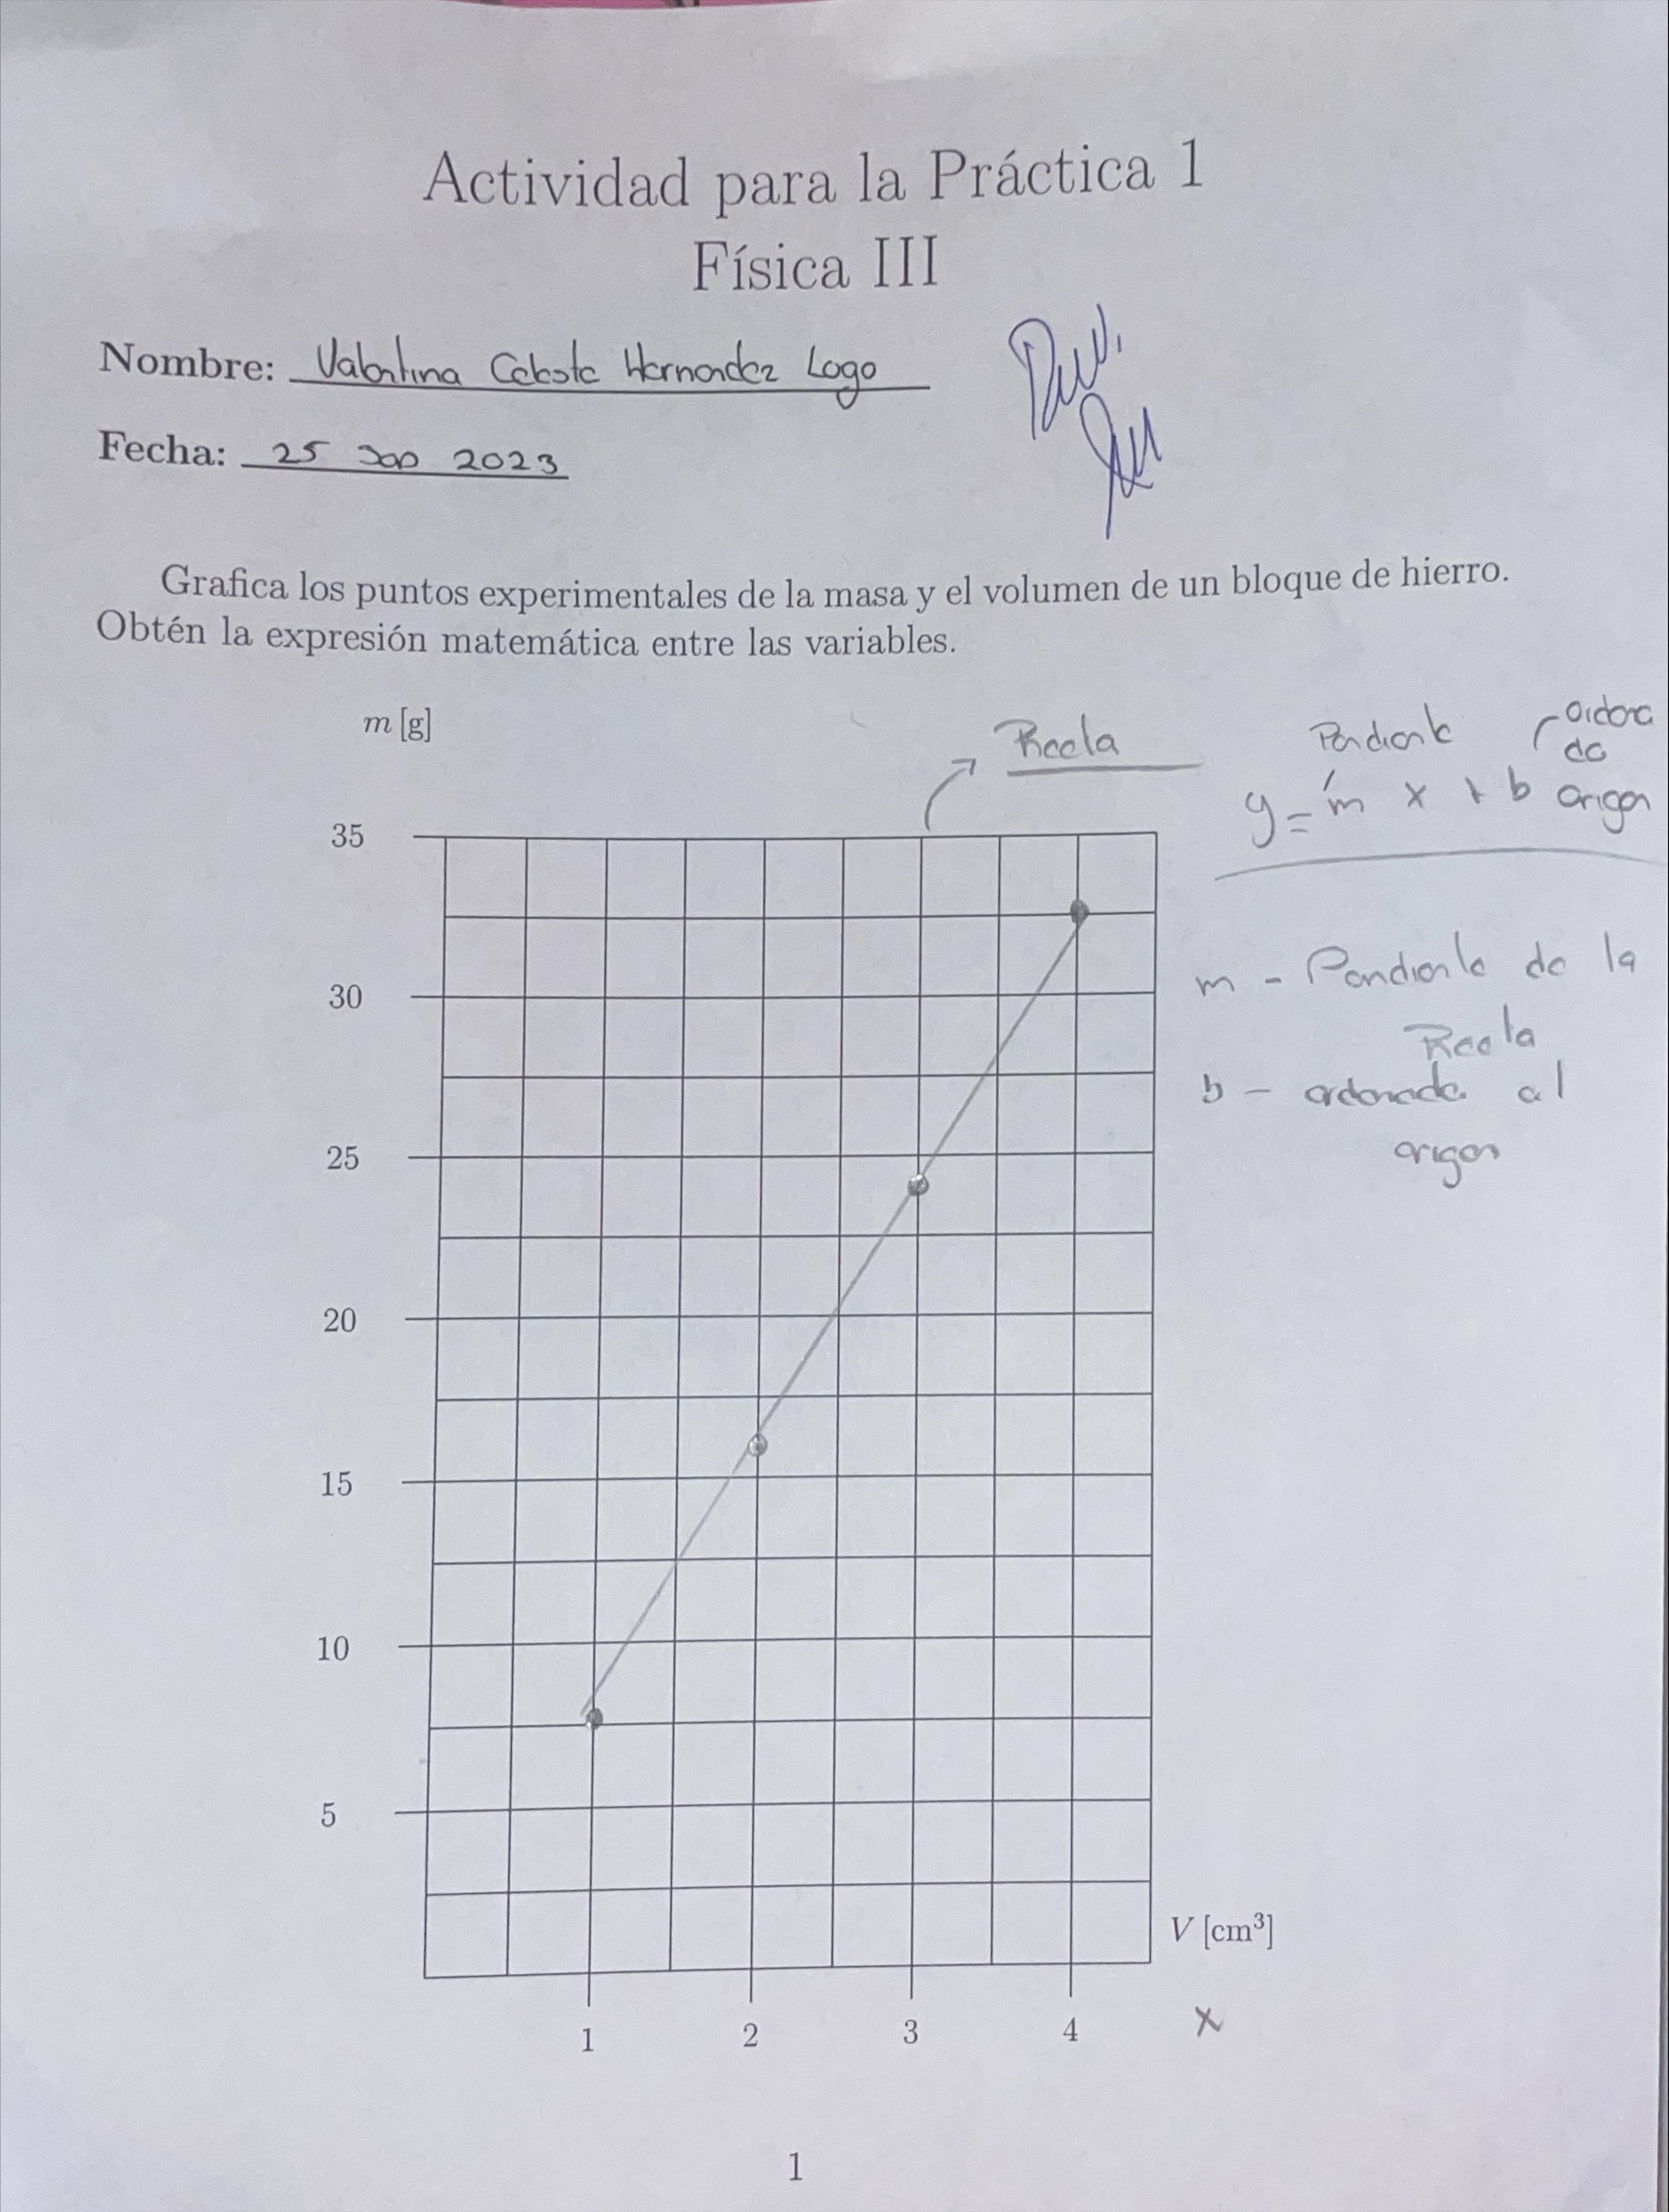 Actividad para la Práctica 1
Física III
Nombre: Valentina Celeste Hernandez Lago
Fecha: 25 2023
Grafica los puntos experimentales de la masa y el volumen de un bloque de hierro.
Obtén la expresión matemática entre las variables.
m [g]
Recta
Pendiente
ordena
da
y = m x + b origen
m - Pendiente de la
Recta
b - ordenada al
origen
35
30
25
20
15
10
5
V [cm³]
1 2 3 4
x
1